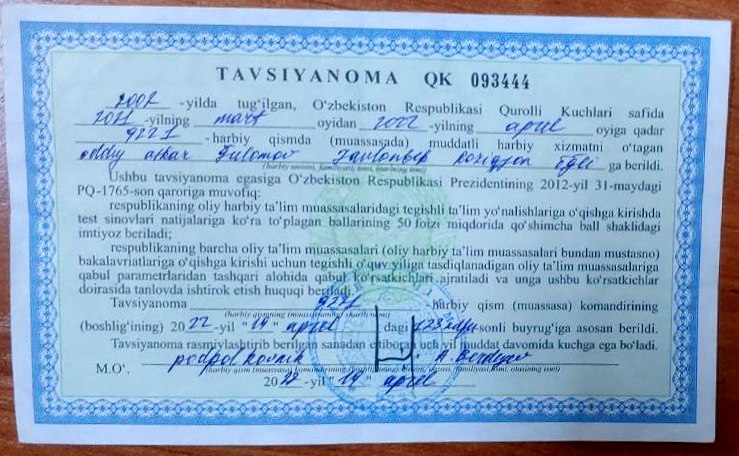 TAVSIYANOMA QK 093444
2002 -yilda tug‘ilgan, O‘zbekiston Respublikasi Qurolli Kuchlari safida
2021 -yilning mart oyidan 2022 -yilning aprel oyiga qadar
9271 -harbiy qismda (muassasada) muddatli harbiy xizmatni o‘tagan
oddiy askar Gulomov Javlonbek ga berildi.
(harbiy unvoni, familiyasi, ismi, otasining ismi)
Ushbu tavsiyanoma egasiga O‘zbekiston Respublikasi Prezidentining 2012-yil 31-maydagi
PQ-1765-son qaroriga muvofiq:
respublikaning oliy harbiy ta’lim muassasalaridagi tegishli ta’lim yo‘nalishlariga o‘qishga kirishda
test sinovlari natijalariga ko‘ra to‘plagan ballarining 50 foizi miqdorida qo‘shimcha ball shaklidagi
imtiyoz beriladi;
respublikaning barcha oliy ta’lim muassasalari (oliy harbiy ta’lim muassasalari bundan mustasno)
bakalavriatlariga o‘qishga kirishi uchun tegishli o‘quv yiliga tasdiqlanadigan oliy ta’lim muassasalariga
qabul parametrlaridan tashqari alohida qabul ko‘rsatkichlari ajratiladi va unga ushbu ko‘rsatkichlar
doirasida tanlovda ishtirok etish huquqi beriladi.
Tavsiyanoma 9271 harbiy qism (muassasa) komandirining
(harbiy qismning (muassasaning) shartli nomi)
(boshlig‘ining) 2022 -yil "14" aprel dagi -sonli buyrug‘iga asosan berildi.
Tavsiyanoma rasmiylashtirib berilgan sanadan etiboran uch yil muddat davomida kuchga ega bo‘ladi.
M.O‘. podpolkovnik A. Berdiyev
(harbiy qism (muassasa) komandirining (boshlig‘ining) harbiy unvoni, imzosi, familiyasi, ismi, otasining ismi)
2022 -yil "14" aprel